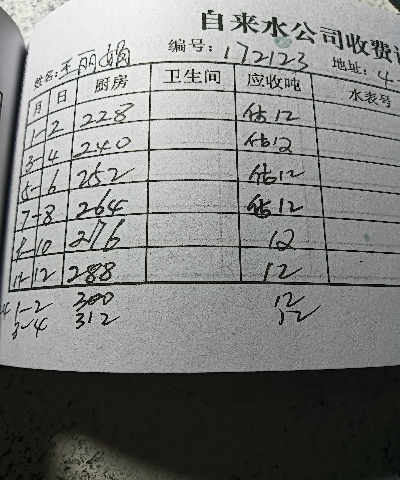 自来水公司收费
姓名:王丽娟 编号:172123 地址:4
月 日 厨房 卫生间 应收吨 水表号
1-2 228 估12
3-4 240 估12
5-6 252 估12
7-8 264 估12
9-10 276 12
11-12 288 12
1-2 300 12
3-4 312 12